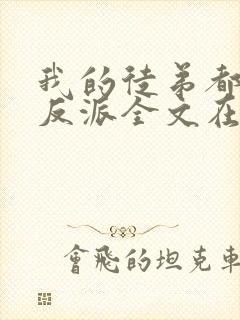 我的徒弟都
反派全文在
會飛的坦克車